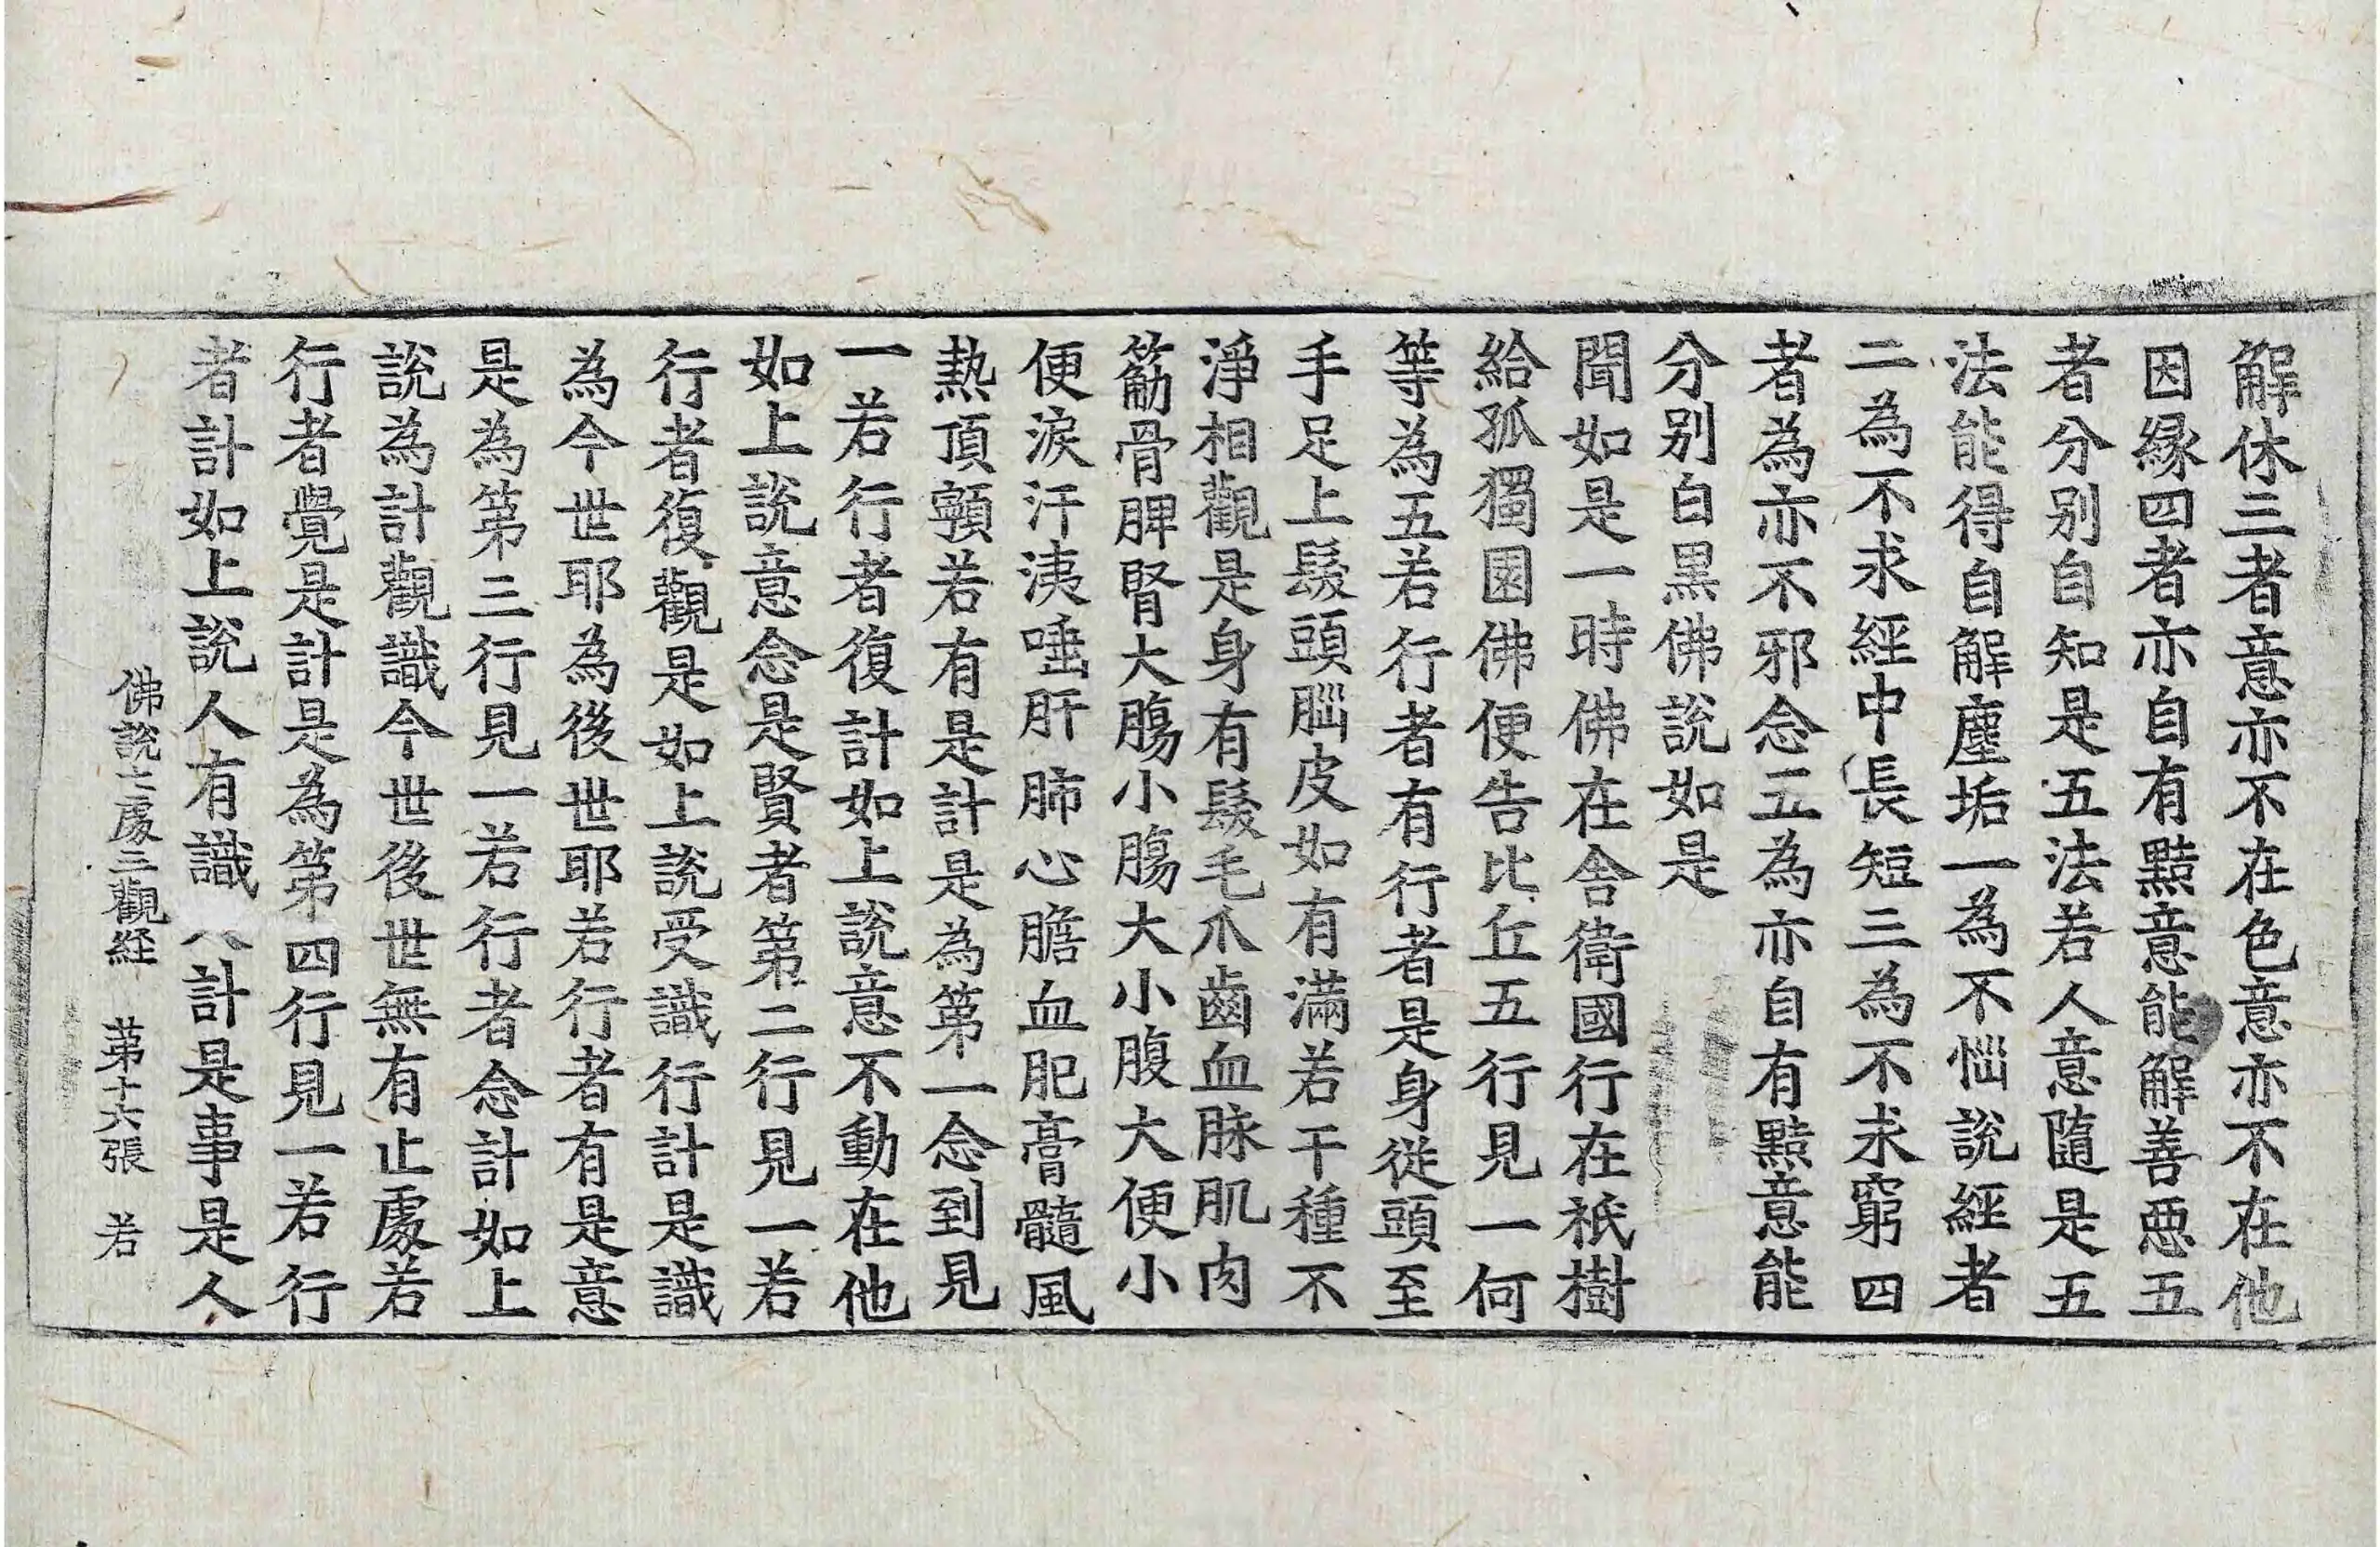 解休三者意亦不在色意亦不在他
因緣四者亦自有黠意能解善惡五
者分别自知是五法若人意隨是五
法能得自解塵垢一為不惱說經者
二為不求經中長短三為不求窮四
者為亦不邪念五為亦自有黠意能
分别白黒佛說如是
聞如是一時佛在舎衛國行在祇樹
給孤獨園佛便告比丘五行見一何
等為五若行者有行者是身從頭至
手足上髮頭腦皮如有滿若干種不
淨相觀是身有髮毛爪齒血脉肌肉
筋骨脾腎大膓小膓大小腹大便小
便淚汗洟唾肝肺心膽血肥膏髓風
熱頂顊若有是計是為第一念到見
一若行者復計如上說意不動在他
如上說意念是賢者第二行見一若
行者復觀是如上說受識行計是識
為今世耶為後世耶若行者有是意
是為第三行見一若行者念計如上
說為計觀識今世後世無有止處若
行者覺是計是為第四行見一若行
者計如上說人有識計是事是人
佛說七處三觀経 第十六張 若